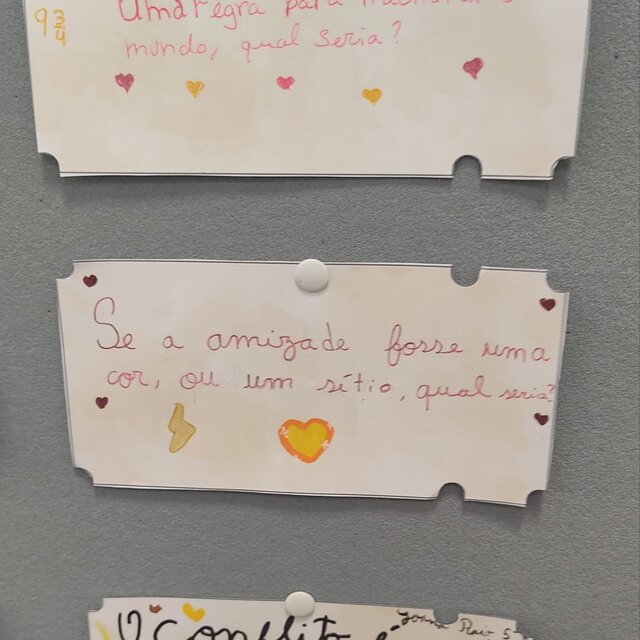 9 3/4
Uma regra para
mundo, qual seria?
Se a amizade fosse uma
cor, ou um sítio, qual seria?
O conflito é